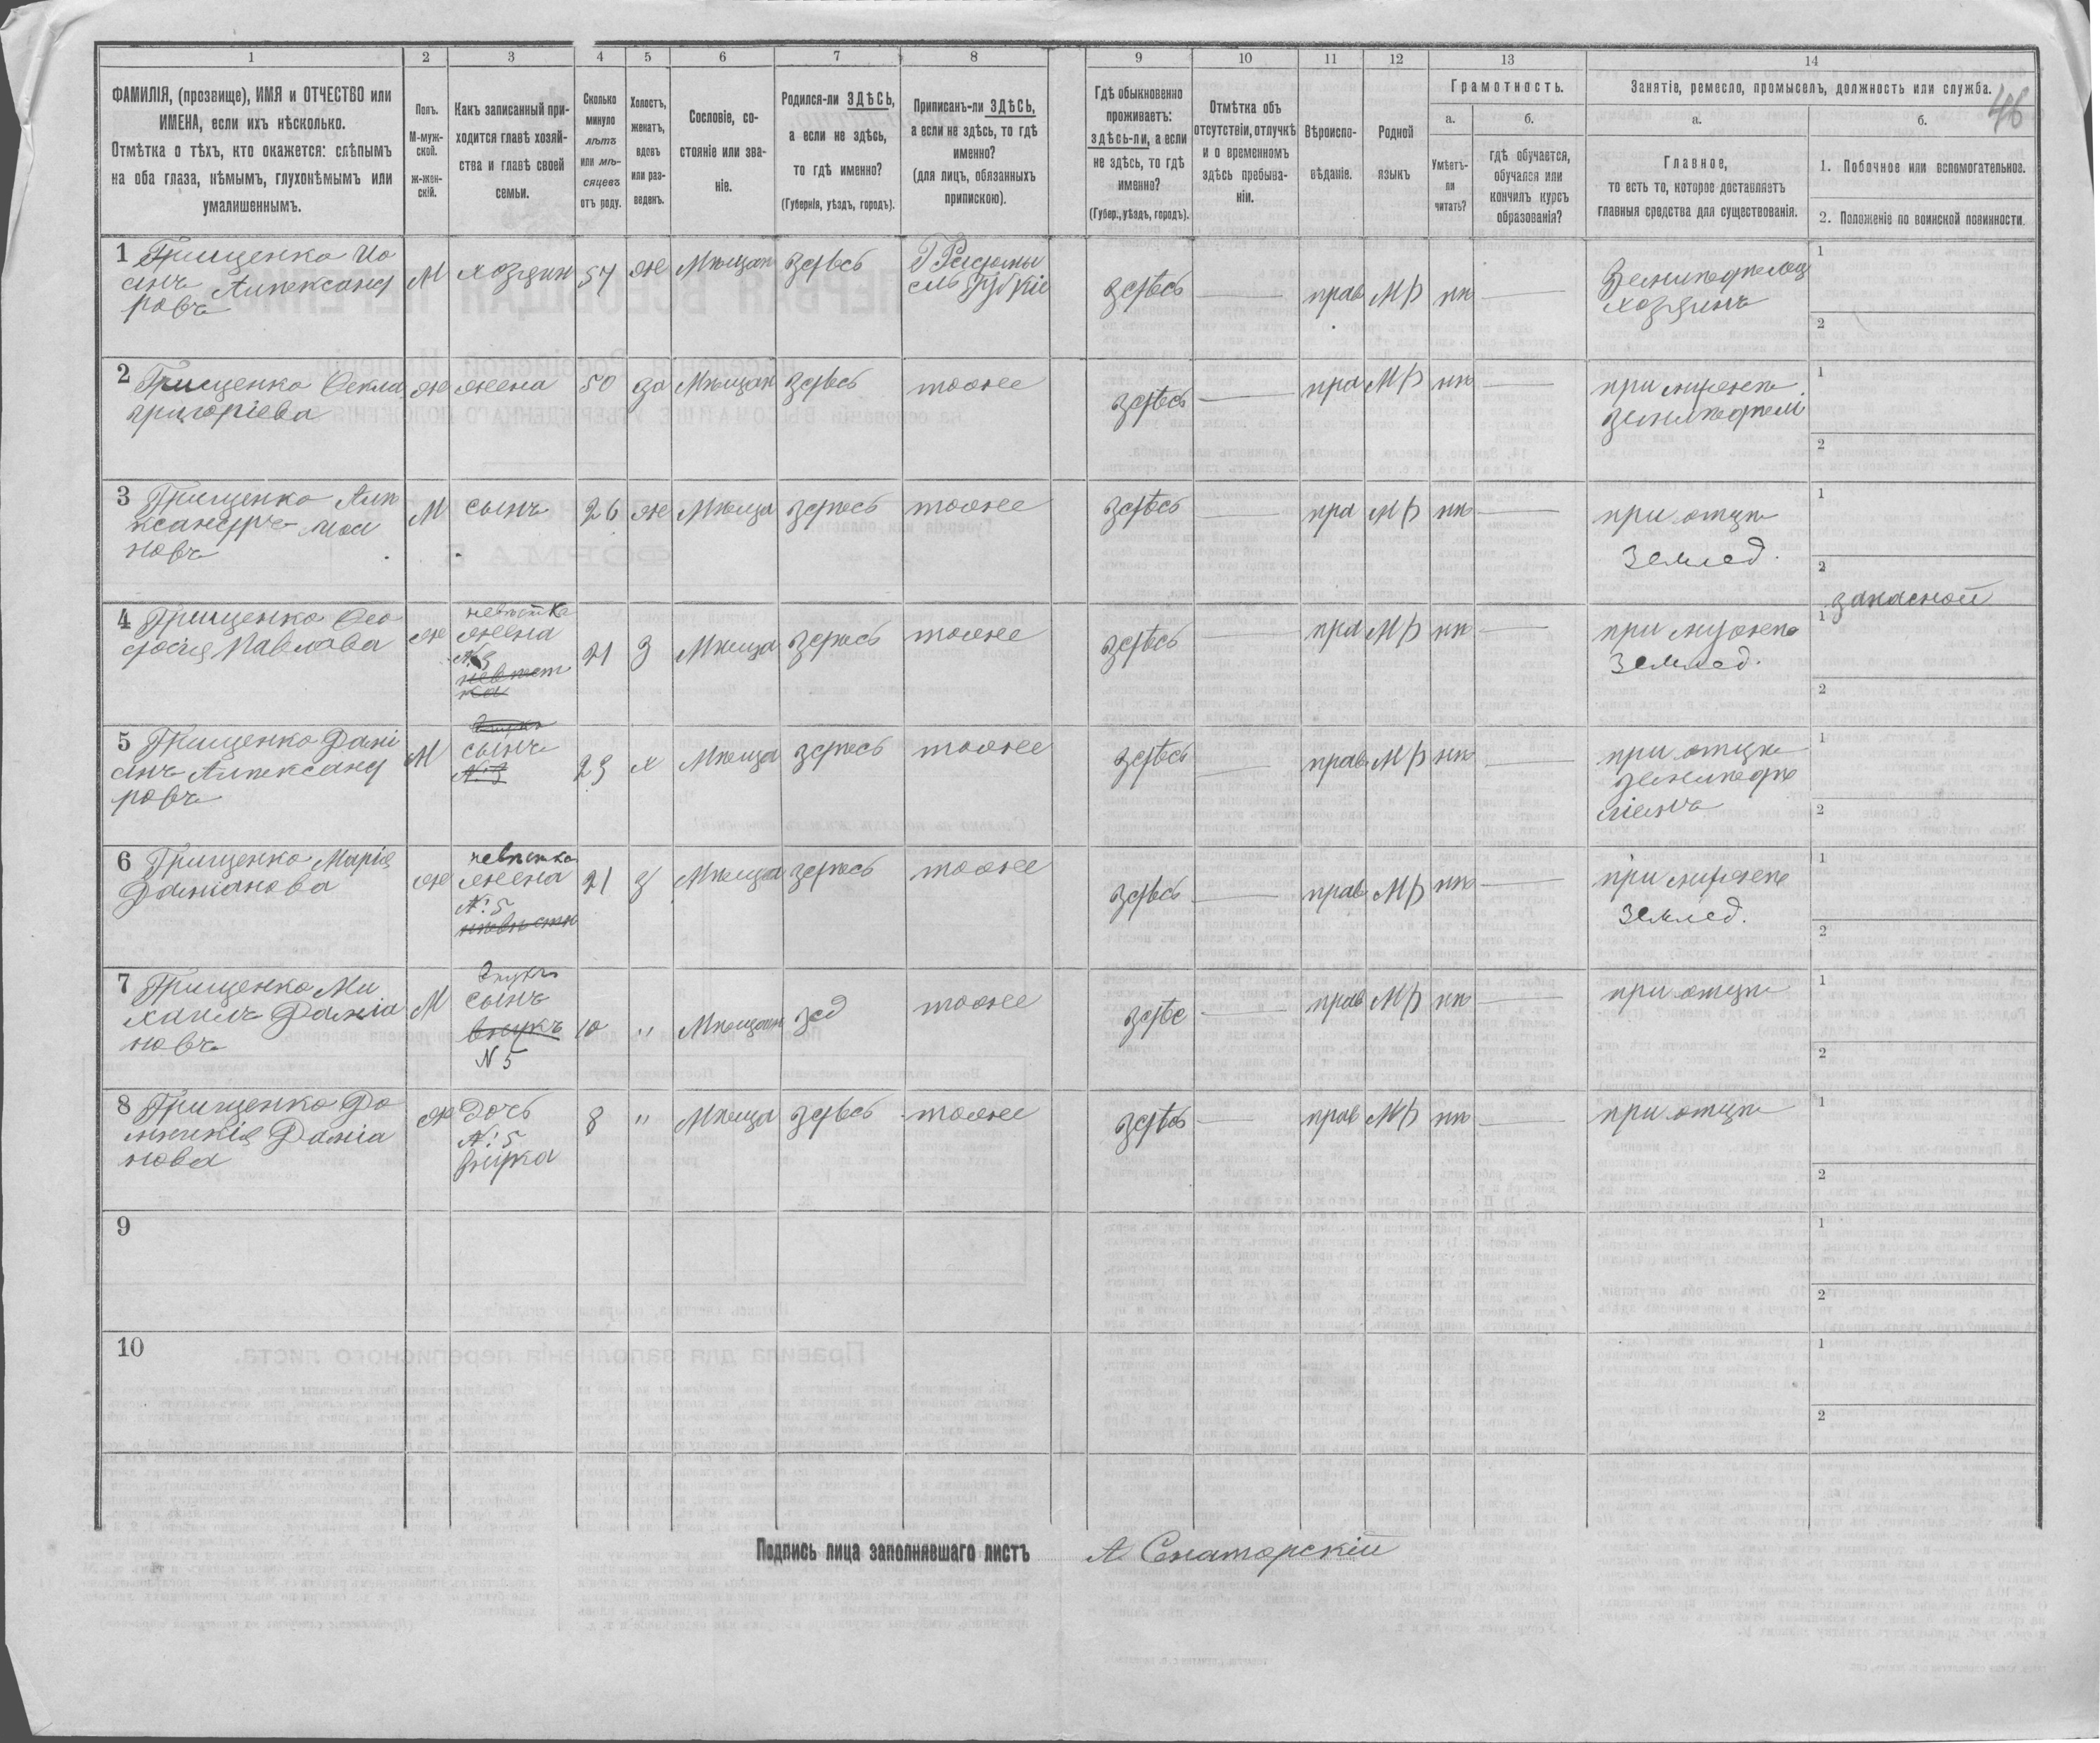 46
1 2 3 4 5 6 7 8 9 10 11 12 13 14
ФАМИЛІЯ, (прозвище), ИМЯ и ОТЧЕСТВО или
ИМЕНА, если ихъ нѣсколько.
Отмѣтка о тѣхъ, кто окажется: слѣпымъ
на оба глаза, нѣмымъ, глухонѣмымъ или
умалишеннымъ.
Полъ.
М-муж-
ской.
Ж-жен-
скій.
Какъ записанный при-
ходится главѣ хозяй-
ства и главѣ своей
семьи.
Сколько
минуло
лѣтъ
или мѣ-
сяцевъ
отъ роду.
Холостъ,
женатъ,
вдовъ
или раз-
веденъ.
Сословіе, со-
стояніе или зва-
ніе.
Родился-ли ЗДѢСЬ,
а если не здѣсь,
то гдѣ именно?
(Губернія, уѣздъ, городъ).
Приписанъ-ли ЗДѢСЬ,
а если не здѣсь, то гдѣ
именно?
(для лицъ, обязанныхъ
припискою).
Гдѣ обыкновенно
проживаетъ:
здѣсь-ли, а если
не здѣсь, то гдѣ
именно?
(Губер., уѣздъ, городъ).
Отмѣтка объ
отсутствіи, отлучкѣ
и о временномъ
здѣсь пребыва-
ніи.
Вѣроиспо-
вѣданіе.
Родной
языкъ
Грамотность.
а.
Умѣетъ-
ли
читать?
б.
гдѣ обучается,
обучался или
кончилъ курсъ
образованія?
Занятіе, ремесло, промыселъ, должность или служба.
а.
Главное,
то есть то, которое доставляетъ
главныя средства для существованія.
б.
1. Побочное или вспомогательное.
2. Положеніе по воинской повинности.
1 Грищенко Іо
анъ Александ
ровъ
М хозяин 57 ж Мѣщан здѣсь
здѣсь — прав МР нѣ —
Земледѣлец
хозяинъ
1
2
2 Грищенко Ѳекла
григоріева
ж жена 50 за Мѣщан здѣсь тоже здѣсь — пра МР нѣ —
при мужѣ
земледѣлі
1
2
3 Грищенко Але
ксандръ Іоа
новъ
М сынъ 26 ж Мѣща здѣсь тоже здѣсь — пра МР нѣ —
при отцѣ
землед.
1
2
запасной
4 Грищенко Ѳео
досія Павлова
ж
невѣстка
жена
№3
невѣст
ка
21 З Мѣща здѣсь тоже здѣсь пра МР нѣ —
при мужѣ
землед.
1
2
5 Грищенко Дамі
анъ Александ
ровъ
М
внукъ
сынъ
№3
23 х Мѣща здѣсь тоже здѣсь — прав МР нѣ —
при отцѣ
земледѣ
ліемъ
1
2
6 Грищенко Марія
Даміанова
ж
невѣстка
жена
№5
невѣстк
21 З Мѣща здѣсь тоже здѣсь — прав МР нѣ —
при мужѣ
землед.
1
2
7 Грищенко Ми
хаилъ Даміа
новъ
М
Внукъ
сынъ
внукъ
N 5
10 " Мѣщан зд тоже здѣс — прав МР нѣ —
при отцѣ
1
2
8 Грищенко До
мникія Даміа
нова
ж
Дочь
№5
внучка
8 " Мѣща здѣсь тоже здѣсь — прав МР нѣ —
при отцѣ
1
2
9
1
2
10
1
2
Подпись лица заполнявшаго листъ А Сенаторскій